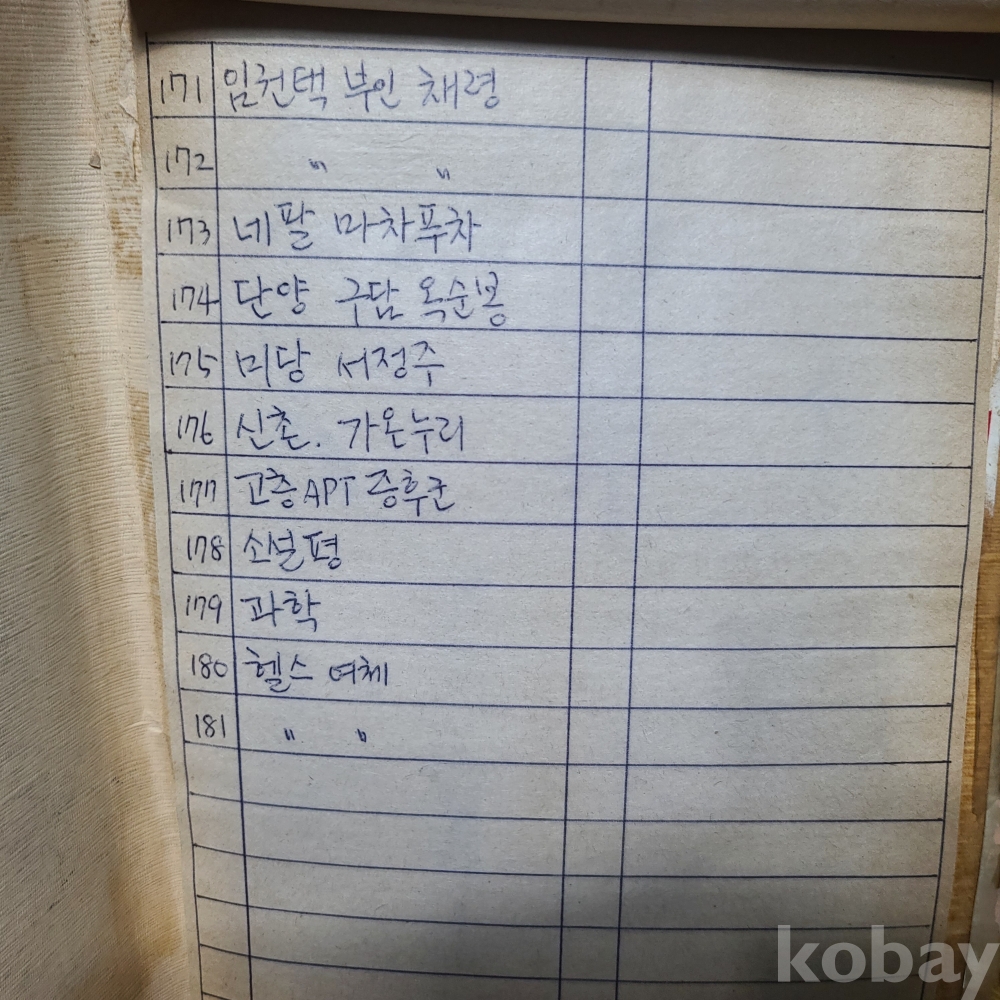 171 임권택 부인 채령
172 〃 〃
173 네팔 마차푸차
174 단양 구담 옥순봉
175 미당 서정주
176 신촌. 가온누리
177 고층APT 증후군
178 소설평
179 과학
180 헬스 여체
181 〃 〃
kobay